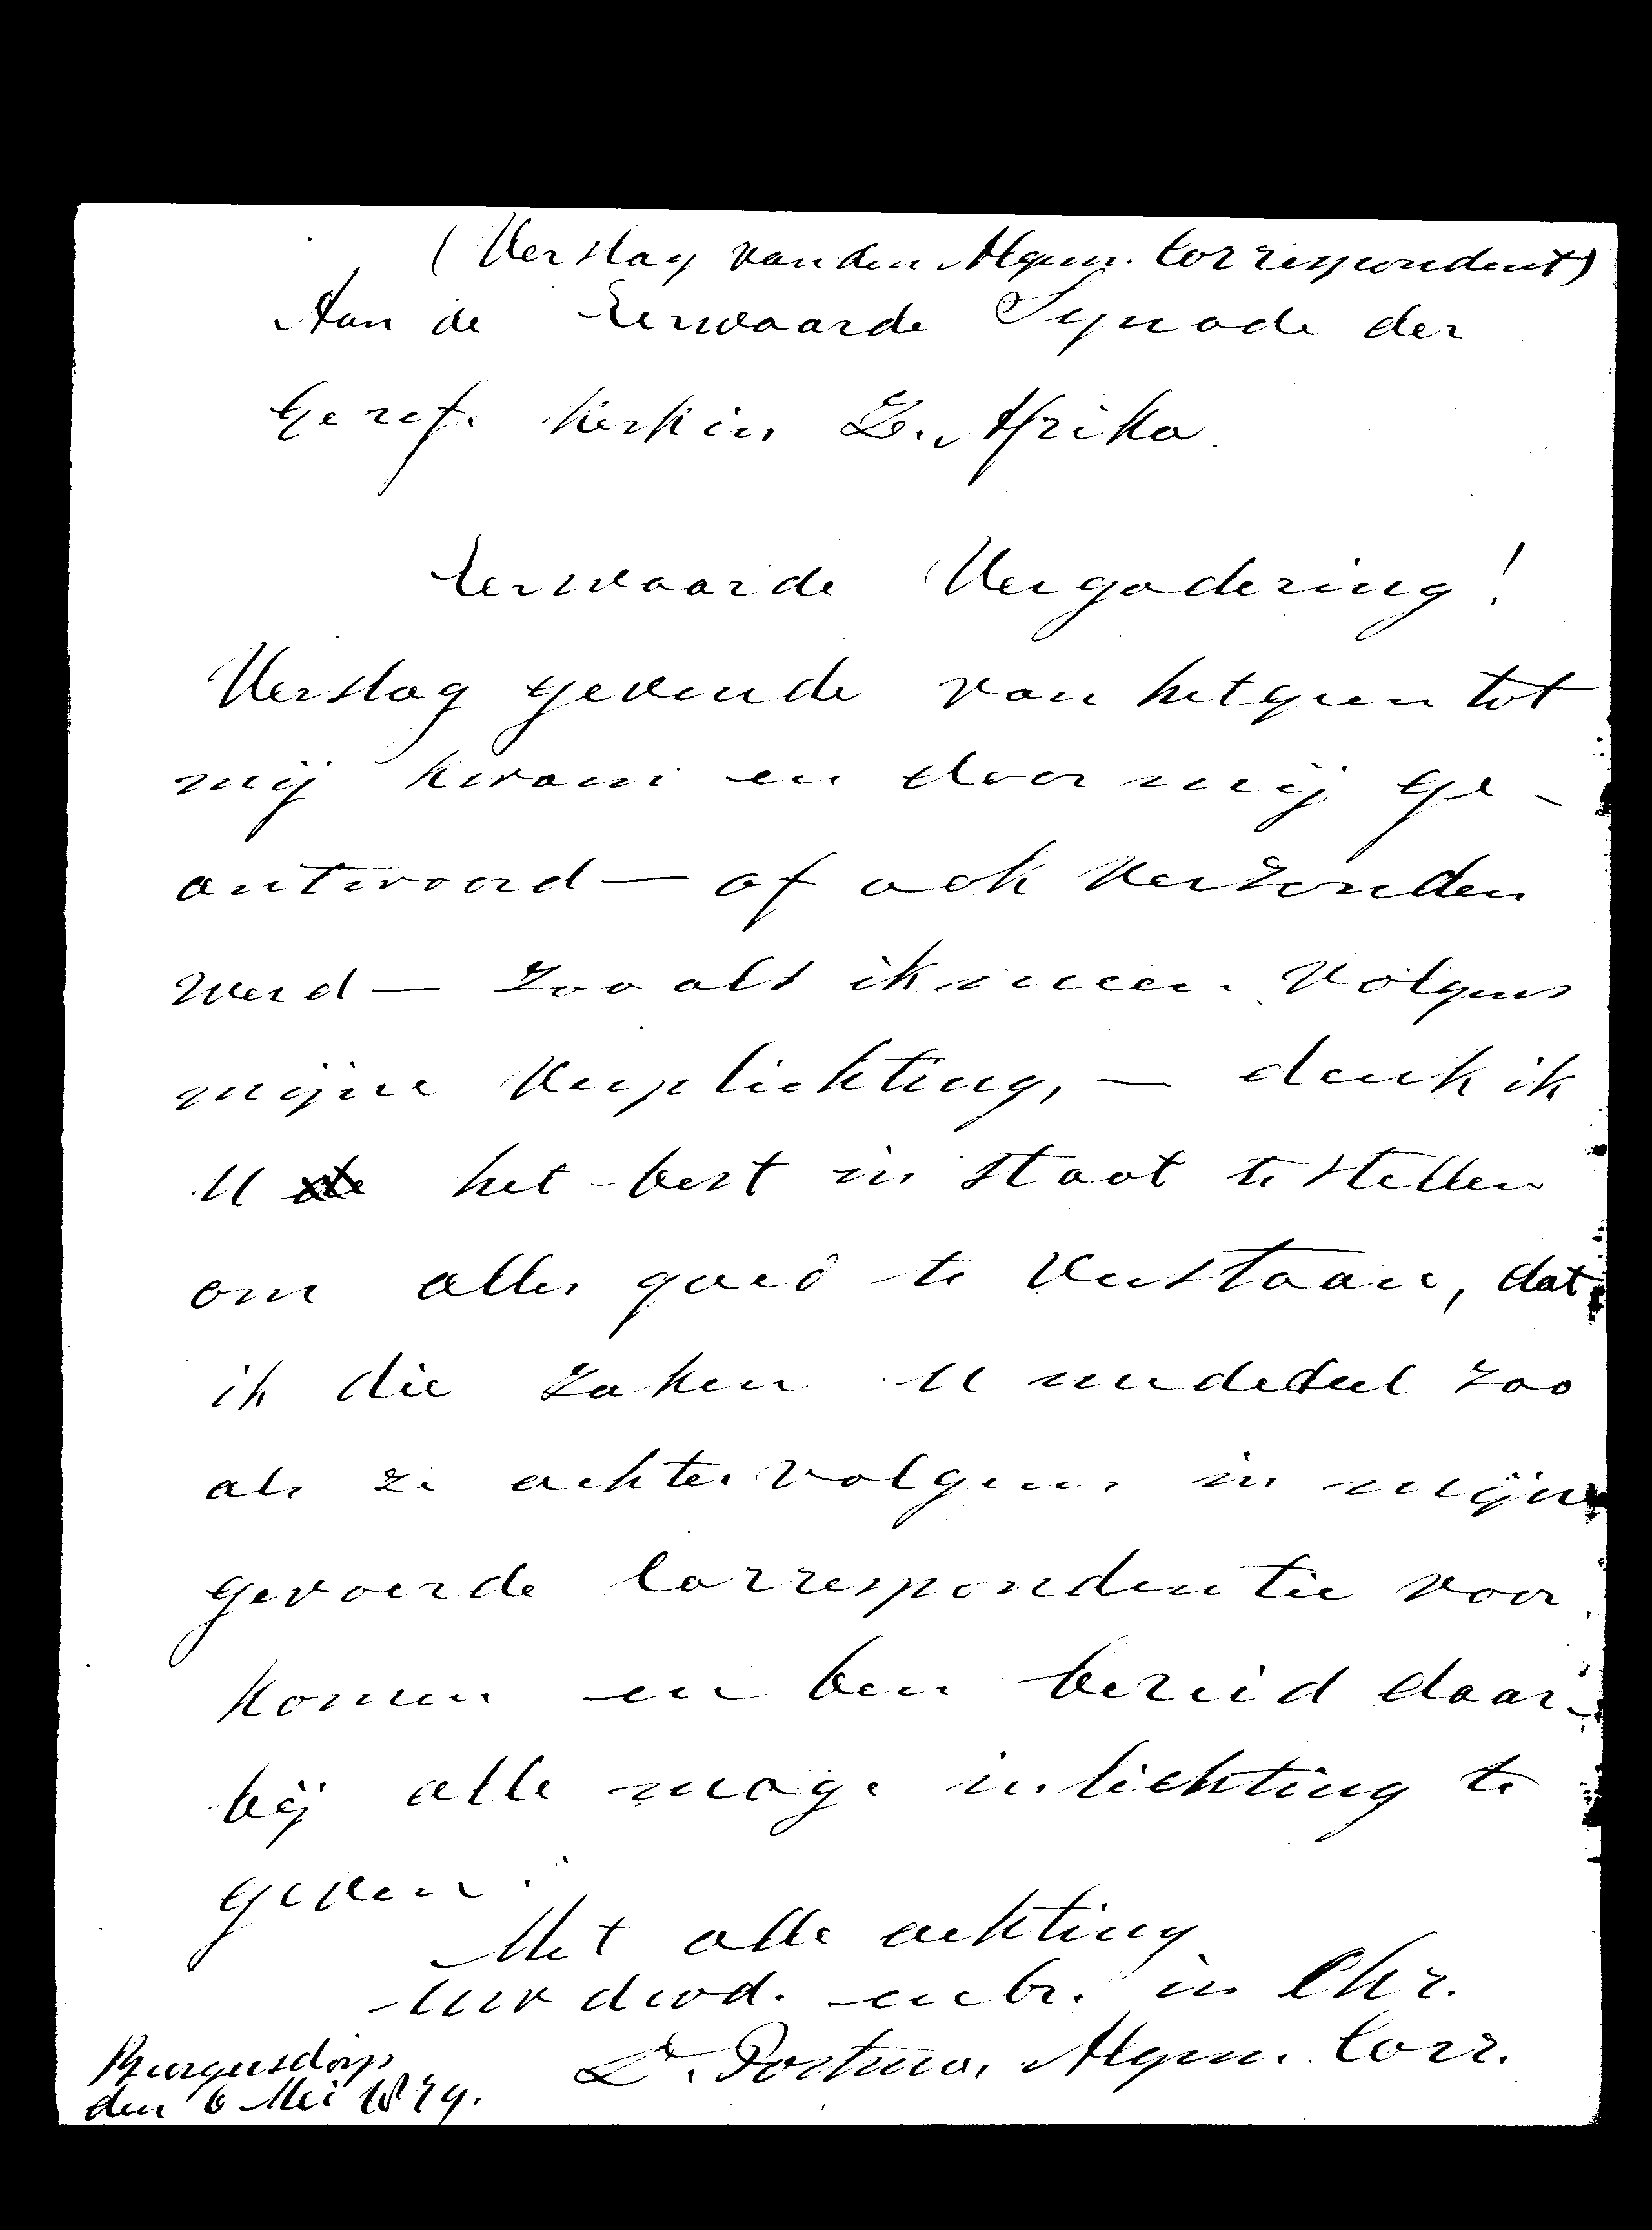 (Verslag van den Algem. Correspondent)
Aan de Eerwaarde Synode der
Geref. Kerk in Z. Afrika.
Eerwaarde Vergadering!
Verslag gevende van hetgeen tot
mij kwam en door mij ge-
antwoord — of ook verzonden
werd — zoo als ik meen volgens
mijne verplichting, — denk ik
U het best in staat te stellen
om alles goed te verstaan, dat
ik die zaken U mededeel zoo
als ze achtervolgens in mijne
gevoerde Correspondentie voor
komen en ben bereid daar-
bij alle moge inlichting te
geven.
Met alle achting
Uw dwd. en br. in Chr.
D. Postma, Algem. Corr.
Burgersdorp
den 6 Mei 1879.